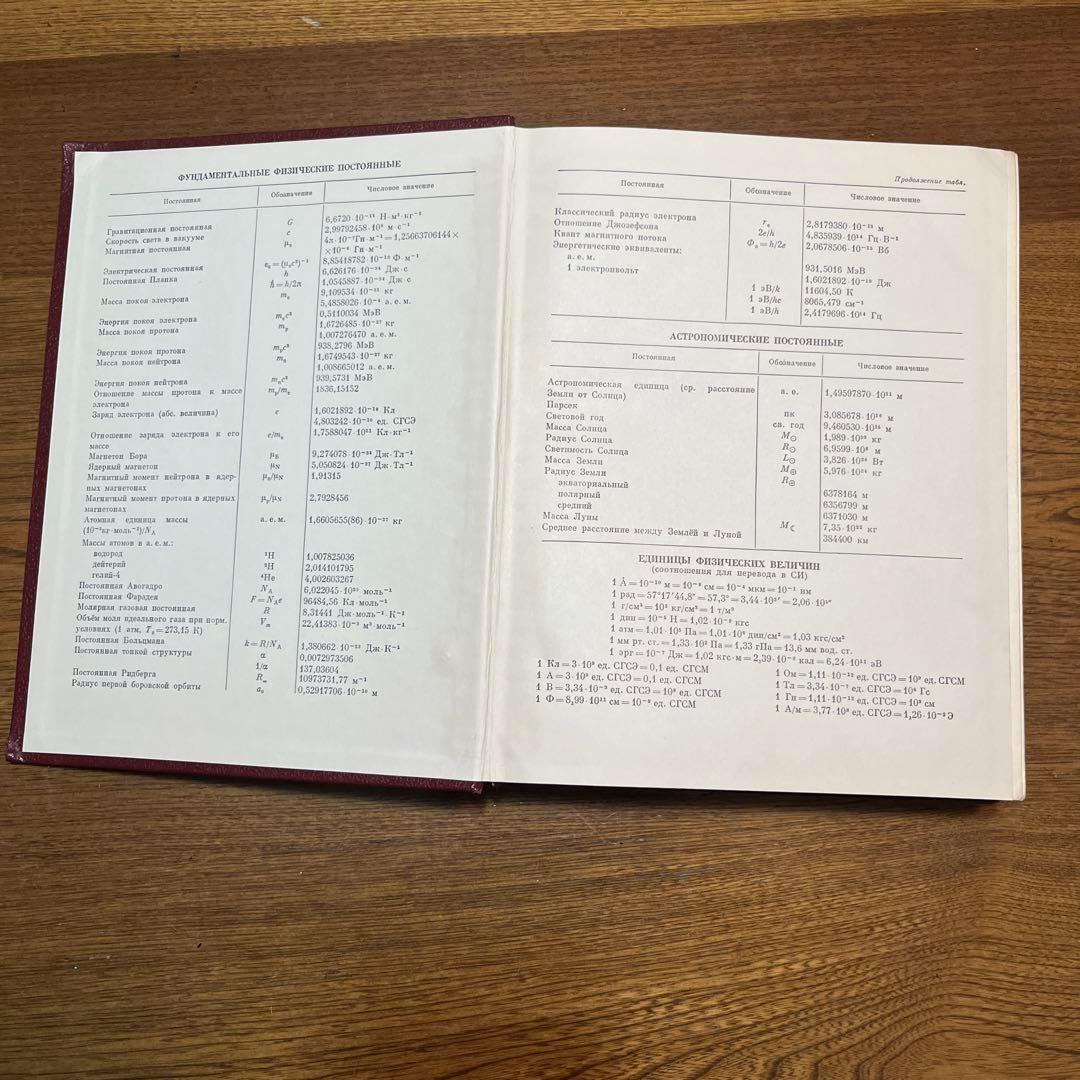 ФУНДАМЕНТАЛЬНЫЕ ФИЗИЧЕСКИЕ ПОСТОЯННЫЕ
Постоянная Обозначение Числовое значение
Гравитационная постоянная G 6,6720·10⁻¹¹ Н·м²·кг⁻²
Скорость света в вакууме c 2,99792458·10⁸ м·с⁻¹
Магнитная постоянная μ₀ 4π·10⁻⁷Гн·м⁻¹=1,25663706144×
×10⁻⁶ Гн·м⁻¹
Электрическая постоянная ε₀=(μ₀c²)⁻¹ 8,85418782·10⁻¹² Ф·м⁻¹
Постоянная Планка h 6,626176·10⁻³⁴ Дж·с
ħ=h/2π 1,0545887·10⁻³⁴ Дж·с
Масса покоя электрона mₑ 9,109534·10⁻³¹ кг
5,4858026·10⁻⁴ а. е. м.
Энергия покоя электрона mₑc² 0,5110034 МэВ
Масса покоя протона mₚ 1,6726485·10⁻²⁷ кг
1,007276470 а. е. м.
Энергия покоя протона mₚc² 938,2796 МэВ
Масса покоя нейтрона mₙ 1,6749543·10⁻²⁷ кг
1,008665012 а. е. м.
Энергия покоя нейтрона mₙc² 939,5731 МэВ
Отношение массы протона к массе mₚ/mₑ 1836,15152
электрона
Заряд электрона (абс. величина) e 1,6021892·10⁻¹⁹ Кл
4,803242·10⁻¹⁰ ед. СГСЭ
Отношение заряда электрона к его e/mₑ 1,7588047·10¹¹ Кл·кг⁻¹
массе
Магнетон Бора μБ 9,274078·10⁻²⁴ Дж·Тл⁻¹
Ядерный магнетон μN 5,050824·10⁻²⁷ Дж·Тл⁻¹
Магнитный момент нейтрона в ядер- μₙ/μN 1,91315
ных магнетонах
Магнитный момент протона в ядерных μₚ/μN 2,7928456
магнетонах
Атомная единица массы а. е. м. 1,6605655(86)·10⁻²⁷ кг
(10⁻³кг·моль⁻¹)/NA
Массы атомов в а. е. м.:
водород ¹H 1,007825036
дейтерий ²H 2,014101795
гелий-4 ⁴He 4,002603267
Постоянная Авогадро NA 6,022045·10²³ моль⁻¹
Постоянная Фарадея F=NAe 96484,56 Кл·моль⁻¹
Молярная газовая постоянная R 8,31441 Дж·моль⁻¹·К⁻¹
Объём моля идеального газа при норм. Vm 22,41383·10⁻³ м³·моль⁻¹
условиях (1 атм, T₀=273,15 К)
Постоянная Больцмана k=R/NA 1,380662·10⁻²³ Дж·К⁻¹
Постоянная тонкой структуры α 0,0072973506
1/α 137,03604
Постоянная Ридберга R∞ 10973731,77 м⁻¹
Радиус первой боровской орбиты a₀ 0,52917706·10⁻¹⁰ м
Продолжение табл.
Постоянная Обозначение Числовое значение
Классический радиус электрона rₑ 2,8179380·10⁻¹⁵ м
Отношение Джозефсона 2e/h 4,835939·10¹⁴ Гц·В⁻¹
Квант магнитного потока Φ₀=h/2e 2,0678506·10⁻¹⁵ Вб
Энергетические эквиваленты:
а. е. м. 931,5016 МэВ
1 электронвольт 1,6021892·10⁻¹⁹ Дж
1 эВ/k 11604,50 К
1 эВ/hc 8065,479 см⁻¹
1 эВ/h 2,4179696·10¹⁴ Гц
АСТРОНОМИЧЕСКИЕ ПОСТОЯННЫЕ
Постоянная Обозначение Числовое значение
Астрономическая единица (ср. расстояние а. е. 1,49597870·10¹¹ м
Земли от Солнца)
Парсек пк 3,085678·10¹⁶ м
Световой год св. год 9,460530·10¹⁵ м
Масса Солнца M⊙ 1,989·10³⁰ кг
Радиус Солнца R⊙ 6,9599·10⁸ м
Светимость Солнца L⊙ 3,826·10²⁶ Вт
Масса Земли M⊕ 5,976·10²⁴ кг
Радиус Земли R⊕
экваториальный 6378164 м
полярный 6356799 м
средний 6371030 м
Масса Луны M☾ 7,35·10²² кг
Среднее расстояние между Землёй и Луной 384400 км
ЕДИНИЦЫ ФИЗИЧЕСКИХ ВЕЛИЧИН
(соотношения для перевода в СИ)
1 Å=10⁻¹⁰ м=10⁻⁸ см=10⁻⁴ мкм=10⁻¹ нм
1 рад=57°17′44,8″=57,3°=3,44·10³′=2,06·10⁵″
1 г/см³=10³ кг/см³=1 т/м³
1 дин=10⁻⁵ Н=1,02·10⁻⁶ кгс
1 атм=1,01·10⁵ Па=1,01·10⁶ дин/см²=1,03 кгс/см²
1 мм рт. ст.=1,33·10² Па=1,33 гПа=13,6 мм вод. ст.
1 эрг=10⁻⁷ Дж=1,02 кгс·м=2,39·10⁻⁸ кал=6,24·10¹¹ эВ
1 Кл=3·10⁹ ед. СГСЭ=0,1 ед. СГСМ
1 А=3·10⁹ ед. СГСЭ=0,1 ед. СГСМ
1 В=3,34·10⁻³ ед. СГСЭ=10⁸ ед. СГСМ
1 Ф=8,99·10¹¹ см=10⁻⁹ ед. СГСМ
1 Ом=1,11·10⁻¹² ед. СГСЭ=10⁹ ед. СГСМ
1 Тл=3,34·10⁻⁷ ед. СГСЭ=10⁴ Гс
1 Гн=1,11·10⁻¹² ед. СГСЭ=10⁹ см
1 А/м=3,77·10⁸ ед. СГСЭ=1,26·10⁻² Э